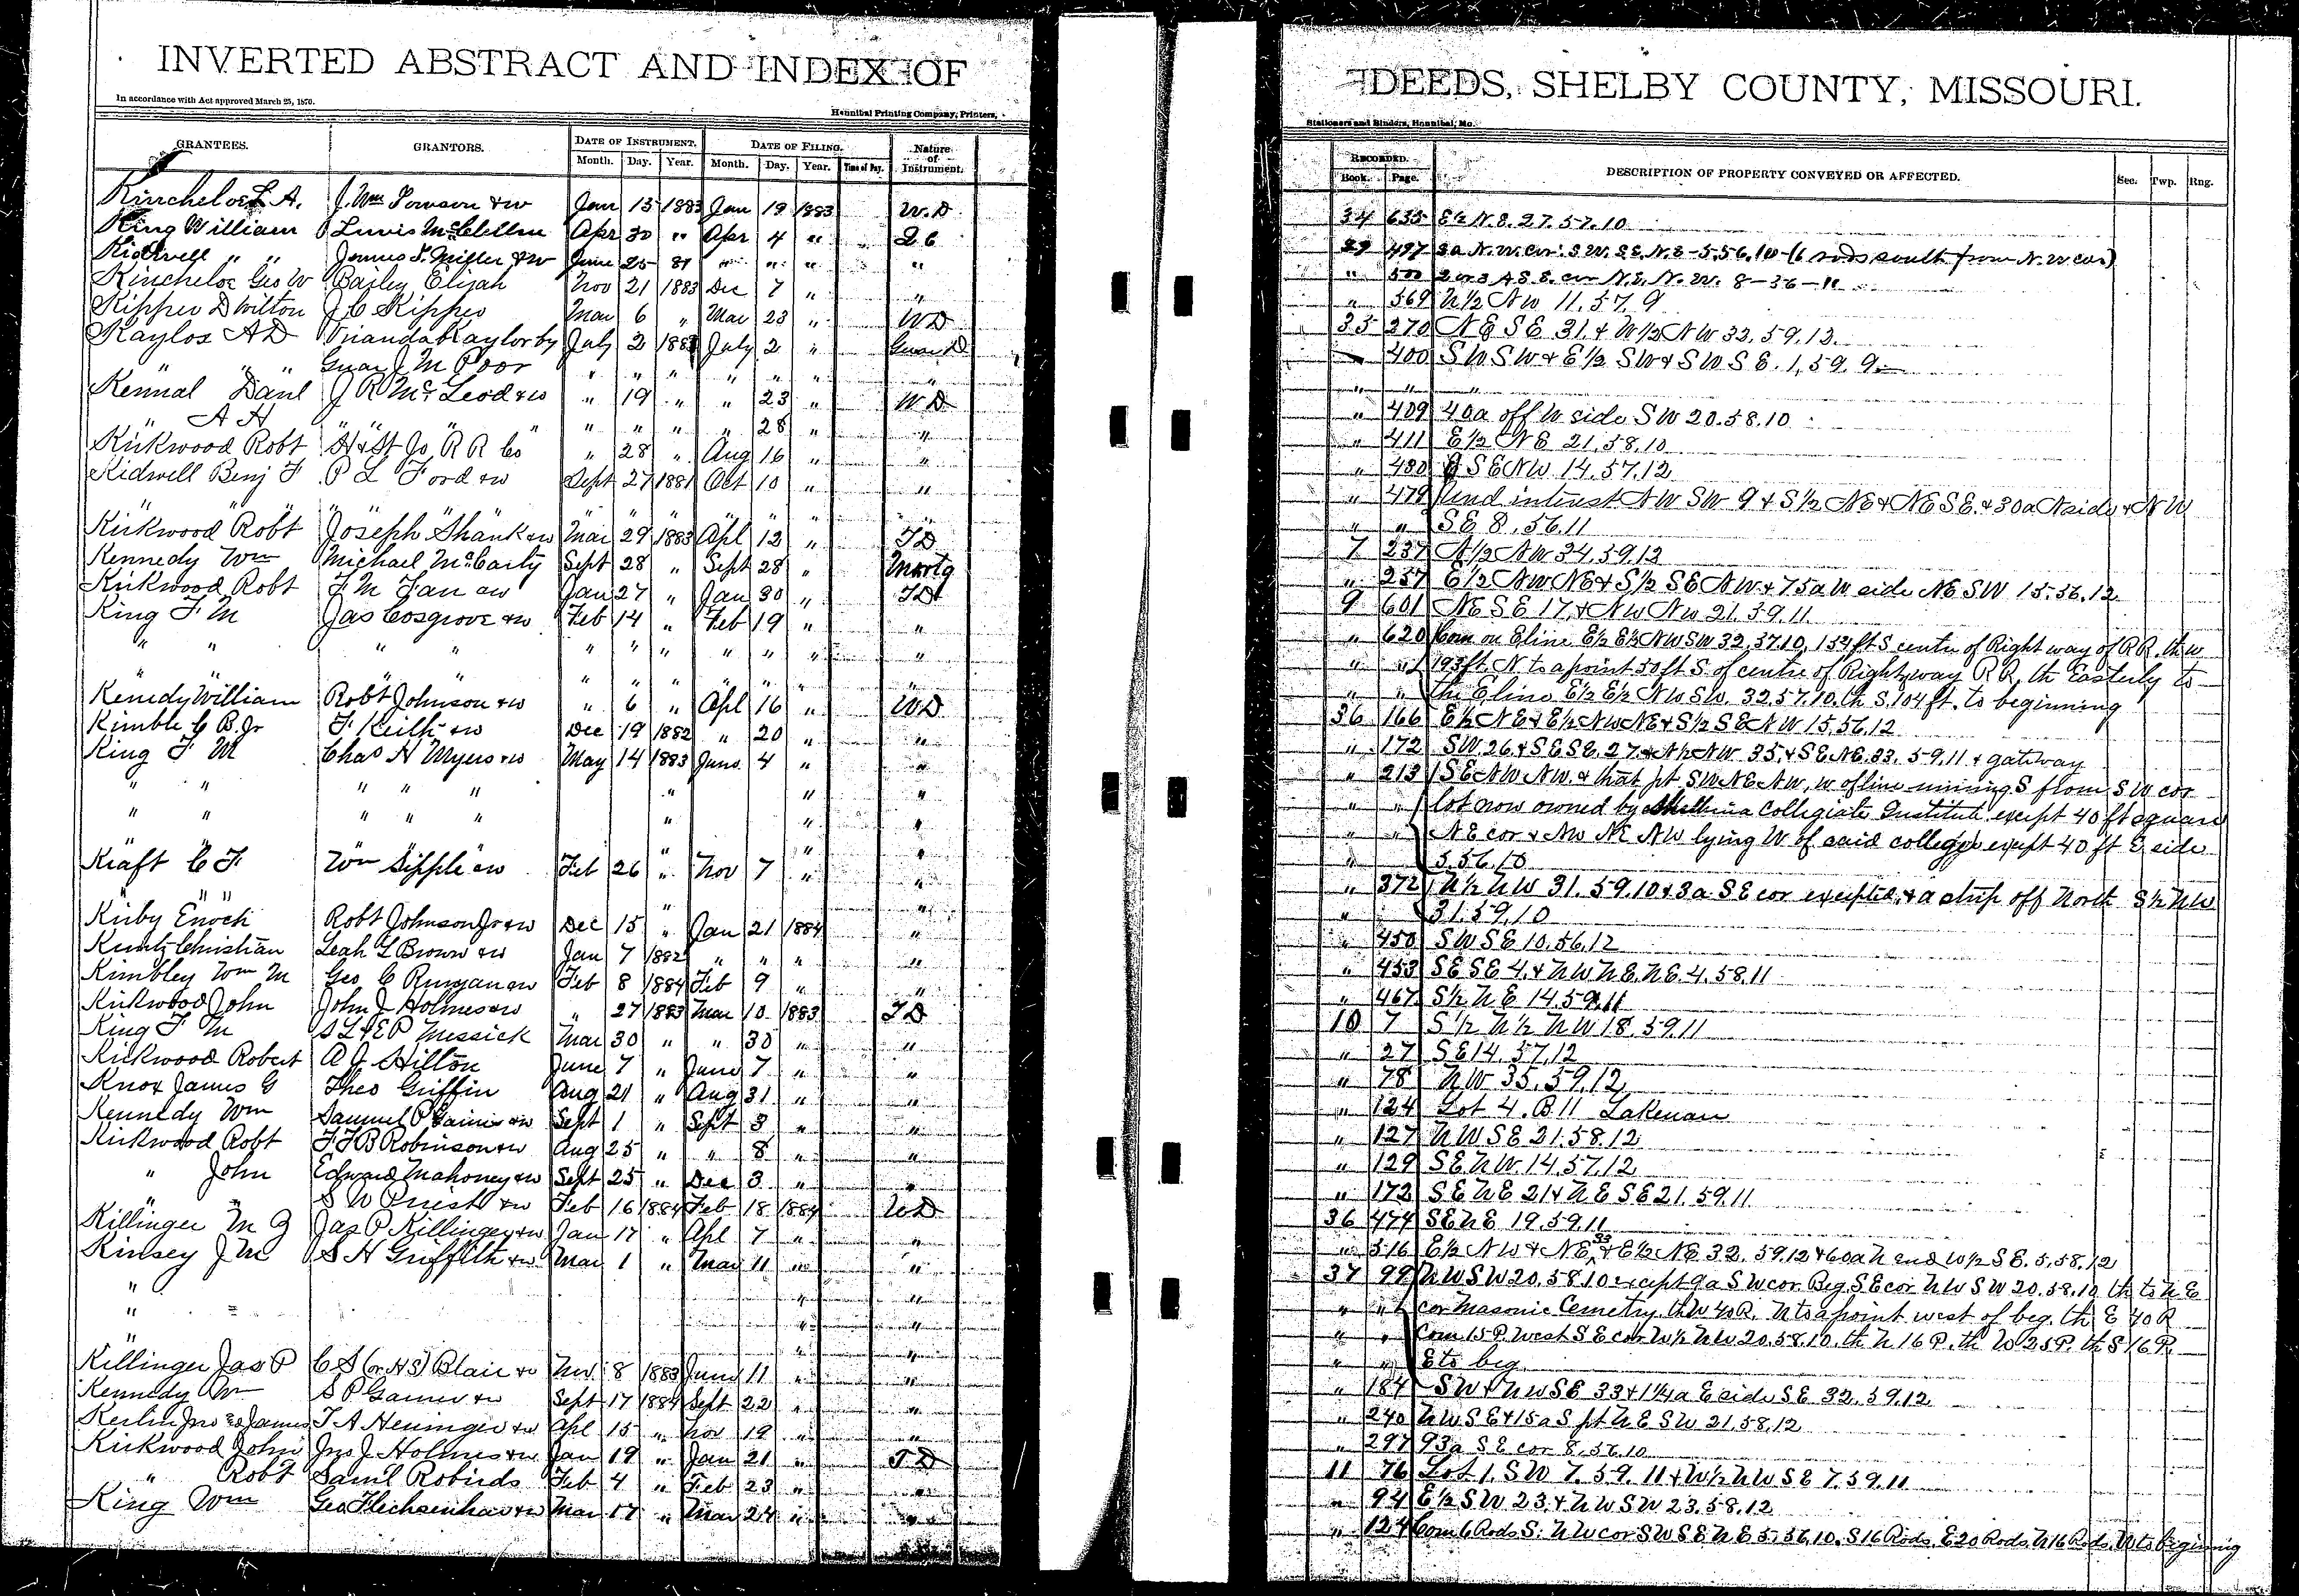 INVERTED ABSTRACT AND INDEX OF
In accordance with Act approved March 25, 1870.
Hannibal Printing Company, Printers,
GRANTEES. GRANTORS. DATE OF INSTRUMENT. DATE OF FILING. Nature of Instrument.
Month. Day. Year. Month. Day. Year. Time of Day.
Kincheloe L A. J. Wm Towson & w Jan 15 1883 Jan 19 1883 W.D.
King William Lewis McClellen Apr 30 " Apr 4 " Q C
Kidwell " " James S. Miller & w June 25 81 " " " "
Kincheloe Geo W Bailey Elijah Nov 21 1883 Dec 7 " "
Kipper D Wilton J C Kipper Mar 6 " Mar 23 " W D
Kaylor A D Kaylor by July 2 1883 July 2 " Guar D
" " Guar J M Poor " " " " " " "
Kennal Danl J R McLeod & w " 19 " " 23 " W D
" A H " " " " " " " 28 " "
Kirkwood Robt H & St Jo R R Co " 28 " Aug 16 " "
Kidwell Benj F P L Ford & w Sept 27 1881 Oct 10 " "
" " " " " " " " " "
Kirkwood Robt Joseph Shank & w Mar 29 1883 Apl 12 " T D
Kennedy Wm Michael McCarty Sept 28 " Sept 28 " Mortg
Kirkwood Robt F M Fan & w Jan 27 " Jan 30 " T D
King F M Jas Cosgrove & w Feb 14 " Feb 19 " "
" " " " " " " " " " "
" " " " " " " " " "
Kenedy William Robt Johnson & w " 6 " Apl 16 " W D
Kimble C B. Jr F Keith & w Dec 19 1882 " 20 " "
King F M Chas H Myers & w May 14 1883 June 4 " "
" " " " " " " "
" " " " " " " "
" " " " "
Kraft C F Wm Sipple & w Feb 26 " Nov 7 " "
" " " "
Kirby Enoch Robt Johnson Jr & w Dec 15 " Jan 21 1884 "
Kuntz Christian Leah L Brown & w Jan 7 1882 " " " "
Kimbley Wm M Geo C Runyan & w Feb 8 1884 Feb 9 " "
Kirkwood John John J Holmes & w " 27 1883 Mar 10 1883 T D
King F M S L & E P Messick Mar 30 " " 30 " "
Kirkwood Robert A J Hilton June 7 " June 7 " "
Knox James G Theo Griffin Aug 21 " Aug 31 " "
Kennedy Wm Samuel P Gaines & w Sept 1 " Sept 3 " "
Kirkwood Robt F F B Robinson & w Aug 25 " " 8 " "
" John Edward Mahoney & w Sept 25 " Dec 3 " "
" " S W Priest & w Feb 16 1884 Feb 18 1884 W D
Killinger M G Jas P Killinger & w Jan 17 " Apl 7 " "
Kinsey J M S H Griffith & w Mar 1 " Mar 11 " "
" " "
" " " "
" " "
Killinger Jas P C S (or H S) Blair & w Nov 8 1883 June 11 " "
Kennedy Wm S P Gaines & w Sept 17 1884 Sept 22 " "
Kerlin Jno & James T A Heninger & w Apl 15 " Nov 19 " "
Kirkwood John Jno J Holmes & w Jan 19 " Jan 21 " T D
" Robt Saml Robirds Feb 4 " Feb 23 " "
King Wm Geo Flechsenhar & w Mar 17 " Mar 24 " "
DEEDS, SHELBY COUNTY, MISSOURI.
Stationers and Binders, Hannibal, Mo.
RECORDED. DESCRIPTION OF PROPERTY CONVEYED OR AFFECTED. Sec. Twp. Rng.
Book. Page.
34 635 E½ N.E. 27.57.10
29 497 3a N.W. cor. S W. S E. N. E - 5.56.10 (6 rods south from N.W cor)
" 500 2 or 3 A S.E. cor N.E. N.W. 8-56-11
" 569 N½ NW 11.57.9
35 270 NE SE 31. & W½ NW 32.59.12.
" 400 SW SW & E½ SW & SW SE. 1, 59. 9
" " "
" 409 40a off W side SW 20.58.10
" 411 E½ NE 21.58.10
" 480 SE NW 14.57.12
" 479 und interest NW SW 9 & S½ NE & NE SE. & 30a N side & NW
" " SE 8.56.11
7 237 N½ NW 34.59.12
" 257 E½ NW NE & S½ SE NW. & 75a W side NE SW 15.56.12
9 601 NE SE 17. & NW NW 21.59.11.
" 620 Com on E line E½ E½ NW SW 32.57.10, 154 ft S centre of Right way of RR. th W
" " 193 ft. N to a point 50 ft S. of centre of Right way RR, th Easterly to
" " the E line E½ E½ NW SW. 32.57.10. th S. 104 ft. to beginning
36 166 E½ NE & E½ NW NE & S½ SE NW 15.56.12
" 172 SW. 26 & SE SE. 27. & N½ NW 35. & SE NE. 33. 59.11 & gateway
" 213 SE NW NW. & that pt SW NE NW, W of line running S from SW cor
" " lot now owned by Shelbina Collegiate Institute except 40 ft square
" " NE cor & NW NE NW lying W of said college except 40 ft E side
" 5.56.10
" 372 N½ NW 31.59.10 & 3a SE cor excepted, & a strip off North S½ NW
" 31.59.10
" 450 SW SE 10.56.12
" 453 SE SE 4. & NW NE. NE. 4.58.11
" 467 S½ NE 14.59.11
10 7 S½ N½ NW 18.59.11
" 27 SE 14.57.12
" 78 NW 35.59.12
" 124 Lot 4. B 11 Lakenan
" 127 NW SE 21.58.12
" 129 SE NW. 14.57.12
" 172 SE NE 21 & NE SE 21.59.11
36 474 SE NE 19.59.11
" 516 E½ NW & NE 33 & E½ NE 32. 59.12 & 60a N end W½ SE. 5.58.12
37 99 NW SW 20.58.10 except 9a SW cor. Beg. SE cor. NW SW 20.58.10 th to NE
" " cor Masonic Cemetry. th W 40 R. N to a point west of beg. th E 40 R
" " Com 15 P. West SE cor W½ NW 20.58.10. th N 16 P. th W 25 P. th S 16 P.
" " E to beg
" 184 SW & NW SE 33 & 1¼a E side SE 32.59.12
" 240 NW SE & 15a S pt NE SW 21.58.12
" 297 93a SE cor 8.56.10
11 76 Lot 1. SW 7. 59. 11 & W½ NW SE 7.59.11
" 94 E½ SW 23 & NW SW 23.58.12
" 124 Com 6 Rods S. NW cor SW SE NE 5.56.10. S 16 Rods. E 20 Rods. N 16 Rods. W to beginning